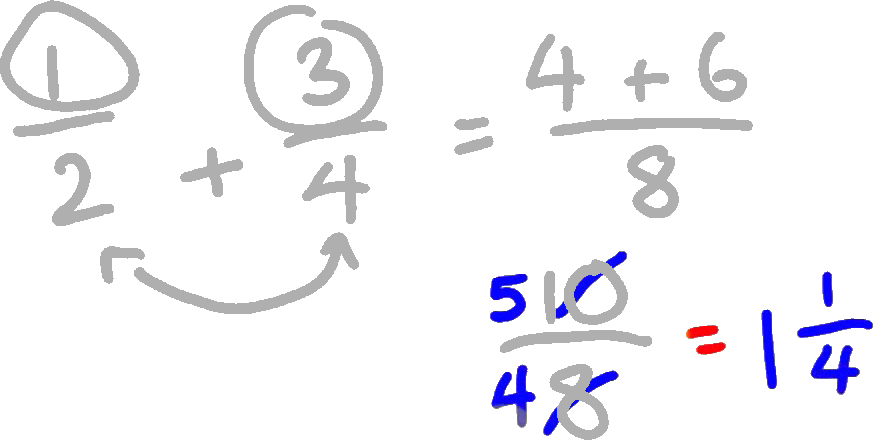 1/2 + 3/4 = (4 + 6)/8
5 10 / 4 8 = 1 1/4